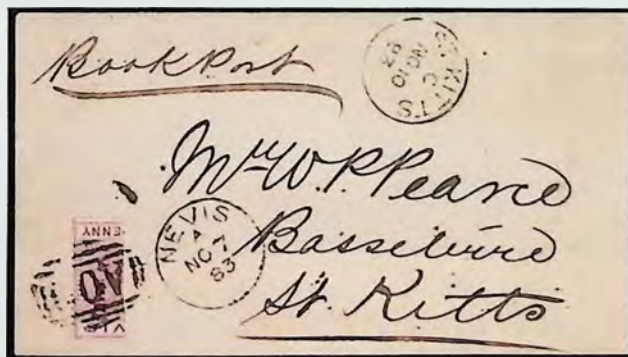 Book Post
ST. KITTS
C
NO 10
Mr. W. P. Pearce
Basseterre
St. Kitts
NEVIS
A
NO 7
83
ENNY
A09